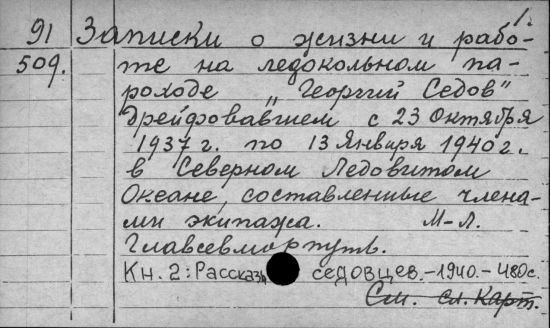 1.
91 Записки о жизни и рабо-
509. те на ледокольном па-
роходе „Георгий Седов"
дрейфовавшем с 23 Октября
1937 г. по 13 Января 1940 г.
в Северном Ледовитом
Океане, составленные члена-
ми экипажа. М-Л.
Главсевморпуть.
Кн. 2: Рассказы седовцев.-1940.-480с.
См. сл. карт.